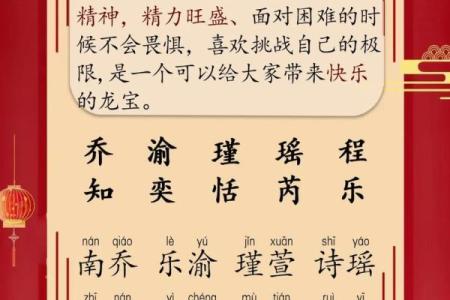 精神，精力旺盛、面对困难的时
候不会畏惧，喜欢挑战自己的极
限，是一个可以给大家带来快乐
的龙宝。
乔 渝 瑾 瑶 程
知 奕 恬 芮 乐
nán qiáo lè yú jǐn xuān shī yáo
南乔 乐渝 瑾萱 诗瑶
zhī nán yì chéng mù tián ruì yì